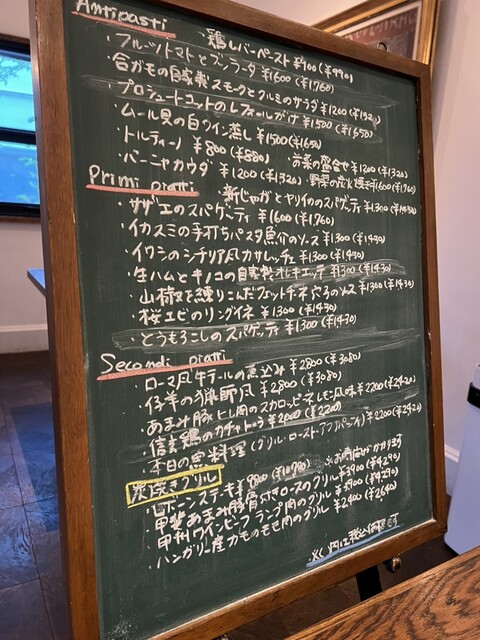 Antipasti
鶏レバーペースト ¥900(¥990)
・フルーツトマトとブッラータ ¥1600(¥1760)
・合ガモの自家製スモークとクルミのサラダ ¥1200(¥1320)
・プロシュートコットのレフォールがけ ¥1500(¥1650)
・ムール貝の白ワイン蒸し ¥1500(¥1650)
・トルティーノ ¥800(¥880) ・前菜の盛合せ ¥1200(¥1320)
・バーニャカウダ ¥1200(¥1320) ・野菜の炭火焼き ¥1600(¥1760)
Primi piatti ・新じゃがとヤリイカのスパゲッティ ¥1300(¥1430)
・サザエのスパゲッティ ¥1600(¥1760)
・イカスミの手打ちパスタ魚介のソース ¥1300(¥1430)
・イワシのシチリア風カサレッチェ ¥1300(¥1430)
・生ハムとキノコの自家製オレキエッテ ¥1300(¥1430)
・山椒を練りこんだフェットチネ 穴子のソース ¥1300(¥1430)
・桜エビのリングイネ ¥1300(¥1430)
・とうもろこしのスパゲッティ ¥1300(¥1430)
Secondi piatti
・ローマ風牛テールの煮込み ¥2800(¥3080)
・仔羊の猟師風 ¥2800(¥3080)
・あまみ豚ヒレ肉のスカロッピーネ レモン風味 ¥2200(¥2420)
・信玄鶏のカチャトゥラ ¥2000(¥2200)
・本日の魚料理(グリル・ロースト・アクアパッツァ) ¥2200(¥2420)
炭焼きグリル
・Lボーンステーキ ¥9800(¥10780) ※お時間がかかります
・甲斐あまみ豚骨付きロースのグリル ¥3900(¥4290)
・甲州ワインビーフ ランプ肉のグリル ¥3900(¥4290)
・ハンガリー産カモのモモ肉のグリル ¥2400(¥2640)
※( )内は税込価格